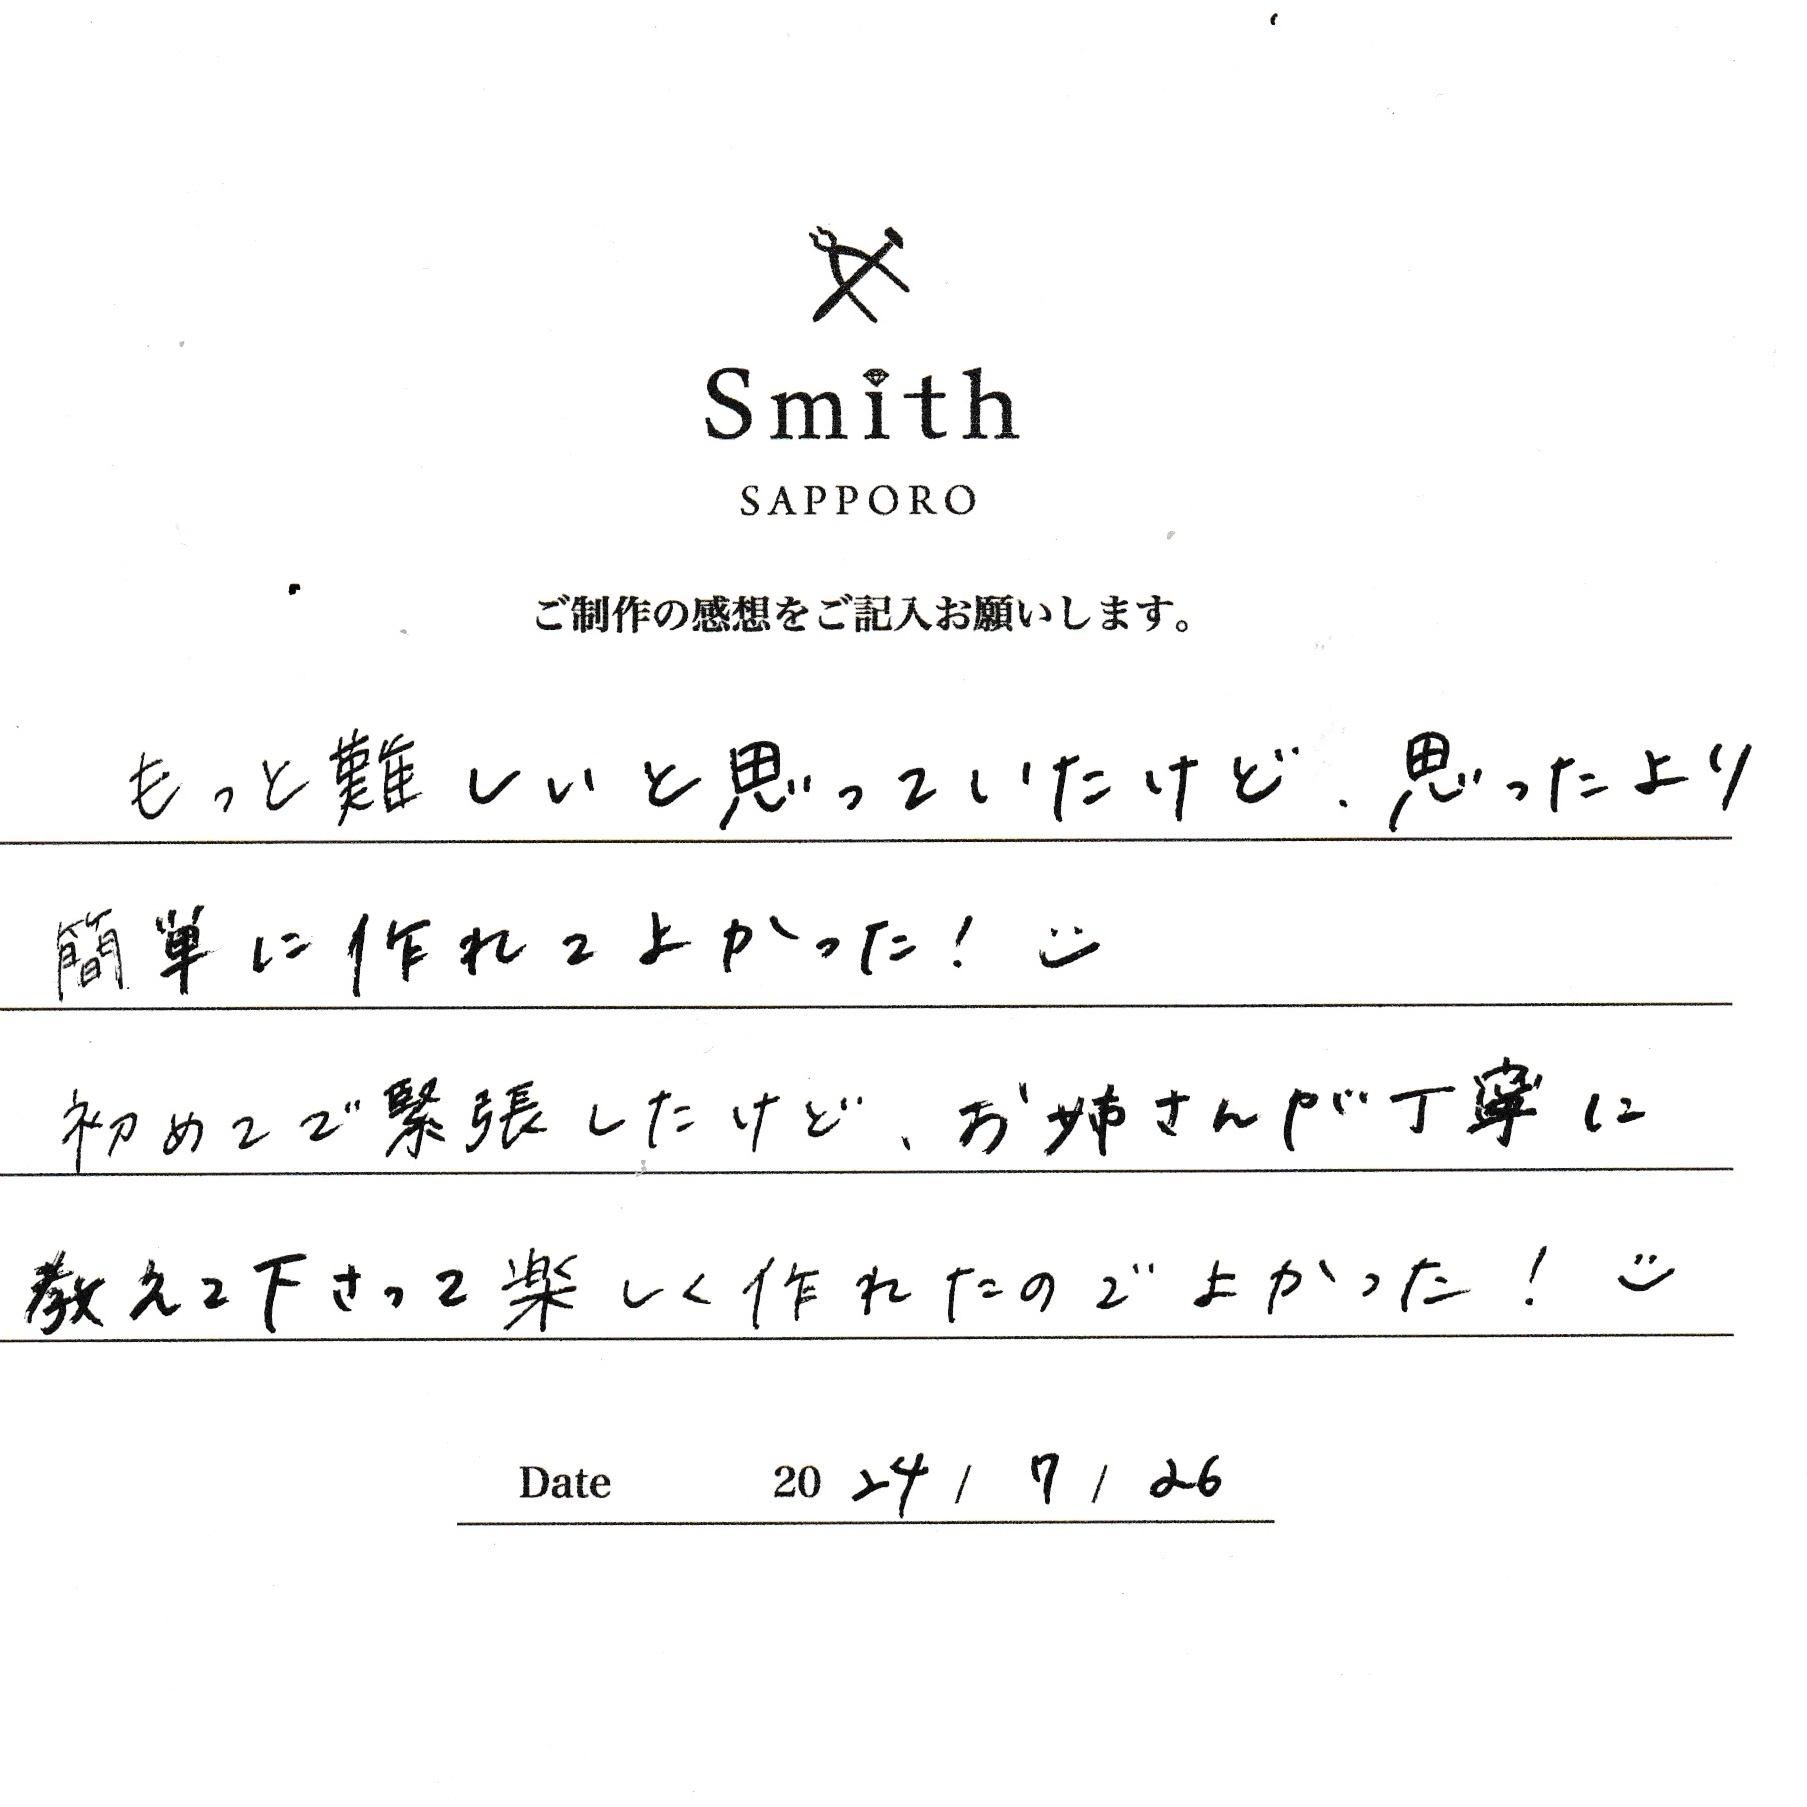 Smith
SAPPORO
ご制作の感想をご記入お願いします。
もっと難しいと思っていたけど、思ったより
簡単に作れてよかった!
初めてで緊張したけど、お姉さんが丁寧に
教えて下さって楽しく作れたのでよかった!
Date 2024 / 7 / 26